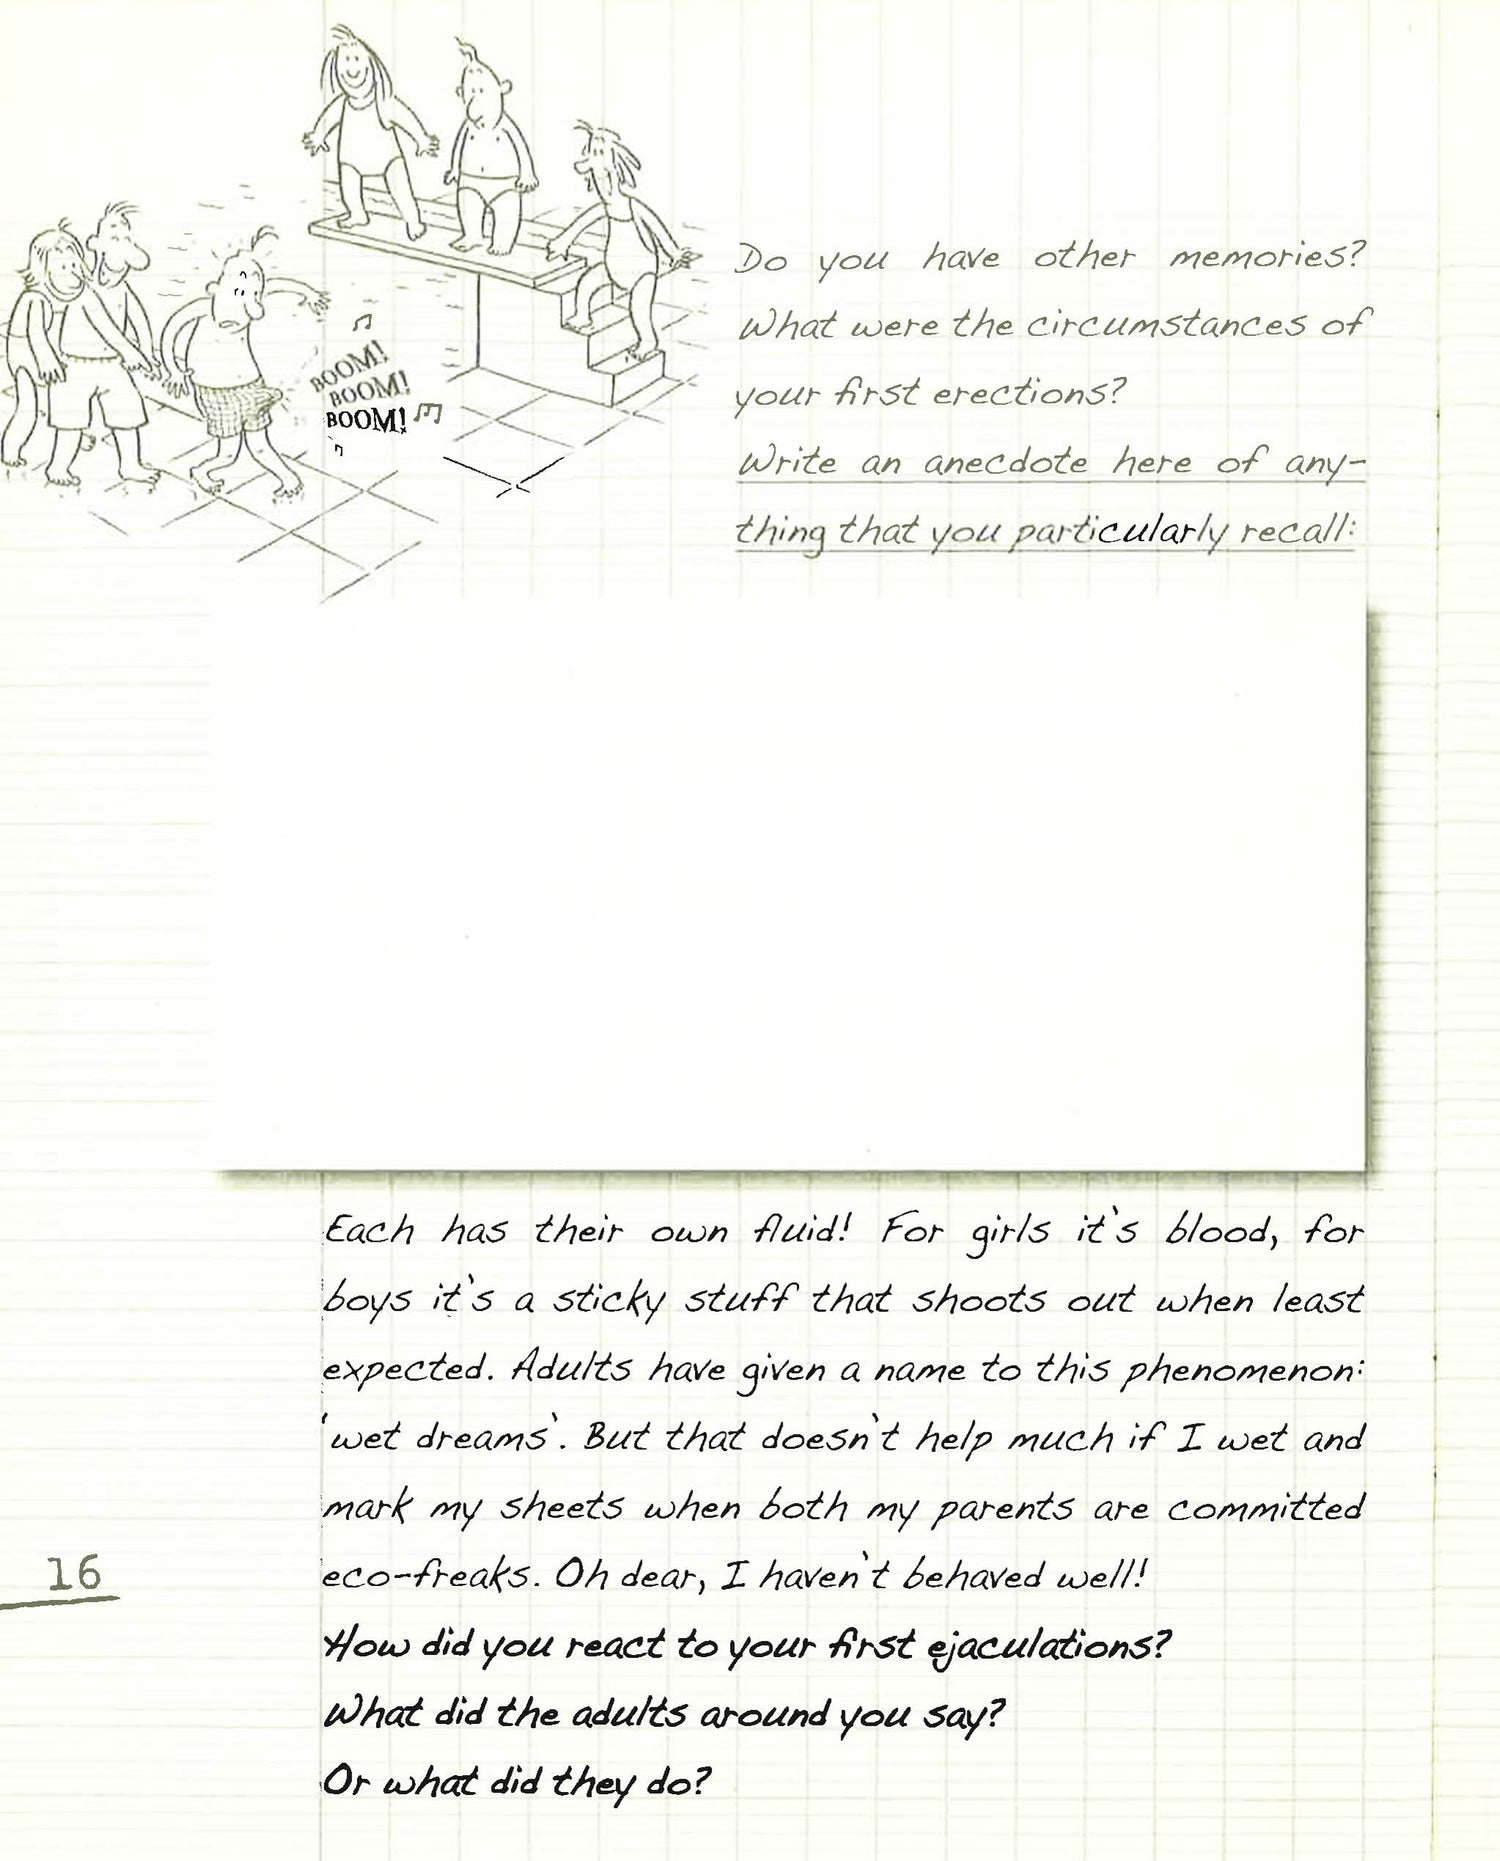 Do you have other memories?
What were the circumstances of
your first erections?
Write an anecdote here of any-
thing that you particularly recall:
BOOM!
BOOM!
BOOM!
Each has their own fluid! For girls it's blood, for
boys it's a sticky stuff that shoots out when least
expected. Adults have given a name to this phenomenon:
'wet dreams'. But that doesn't help much if I wet and
mark my sheets when both my parents are committed
eco-freaks. Oh dear, I haven't behaved well!
How did you react to your first ejaculations?
What did the adults around you say?
Or what did they do?
16